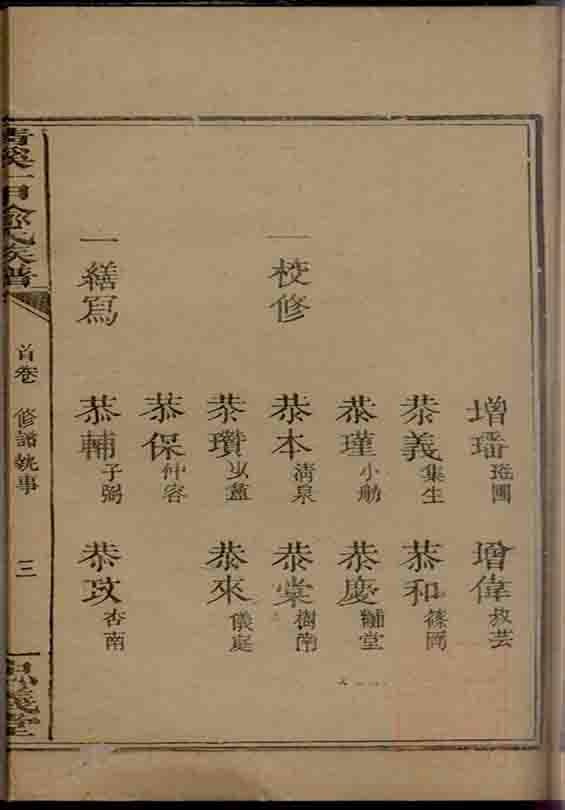 增璠 增偉
恭義集生 恭和
恭瑾小舫 恭慶黼堂
一校修 恭本清泉 恭棠樹南
恭瓚 恭來儀庭
恭保仲容
一繕寫 恭輔子弼 恭玫杏南
俞氏族譜 首卷 修譜執事 三 義堂